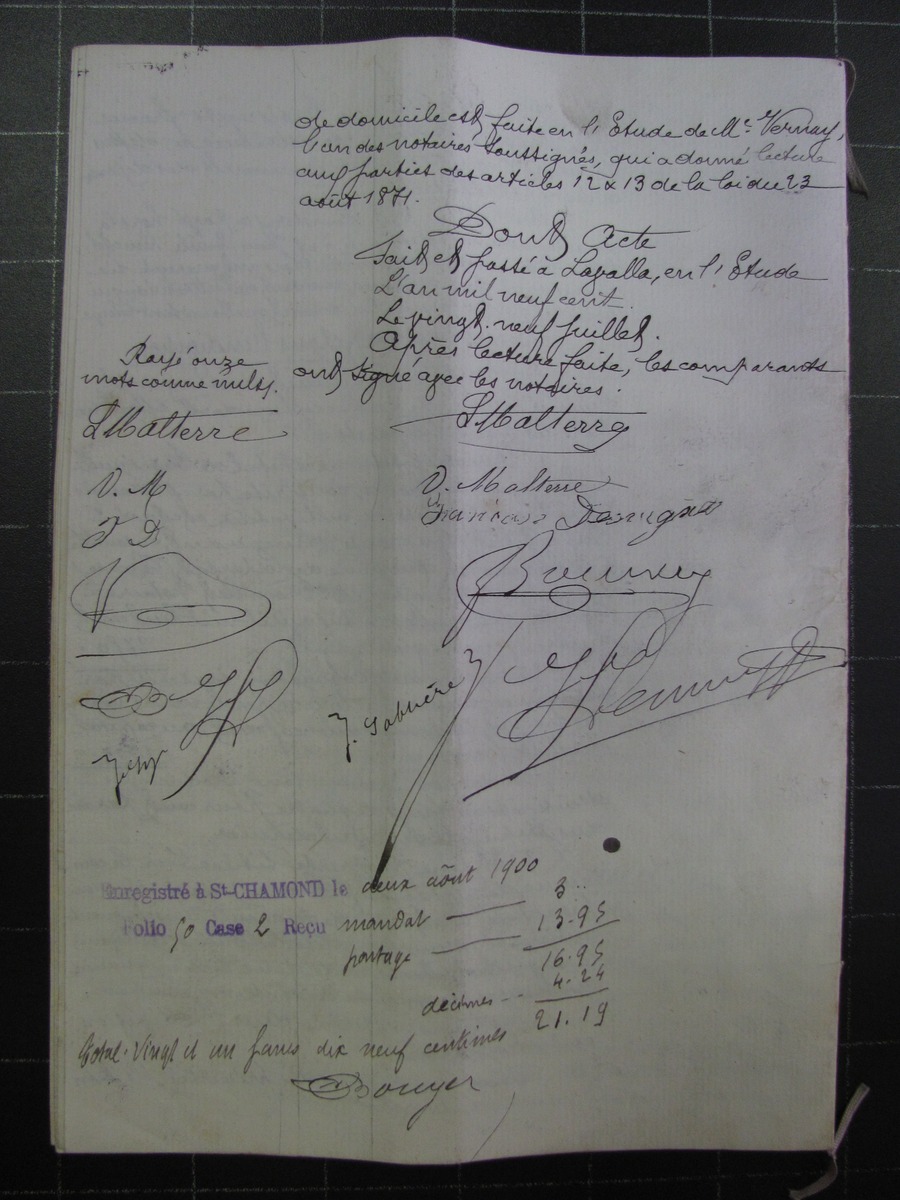 de domicile est faite en l'Etude de Me Vernay,
l'un des notaires soussignés, qui a donné lecture
aux parties des articles 12 & 13 de la loi du 23
août 1871.
Dont Acte
Fait et passé à Lavalla, en l'Etude
L'an mil neuf cent
Le vingt-neuf juillet.
Après lecture faite, les comparants
ont signé avec les notaires.
Rayé onze
mots comme nuls.
Malterre
Malterre
V. M
V. Malterre
F D
François
B
Enregistré à St-CHAMOND le deux août 1900
Folio 50 Case 2 Reçu mandat 3..
13.95
partage
16.95
4.24
décimes
21.19
total. Vingt et un francs dix neuf centimes
Bouyer